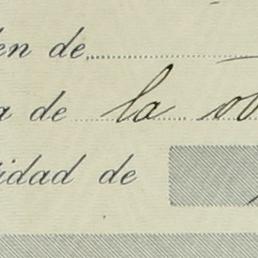 en de
a de la
idad de